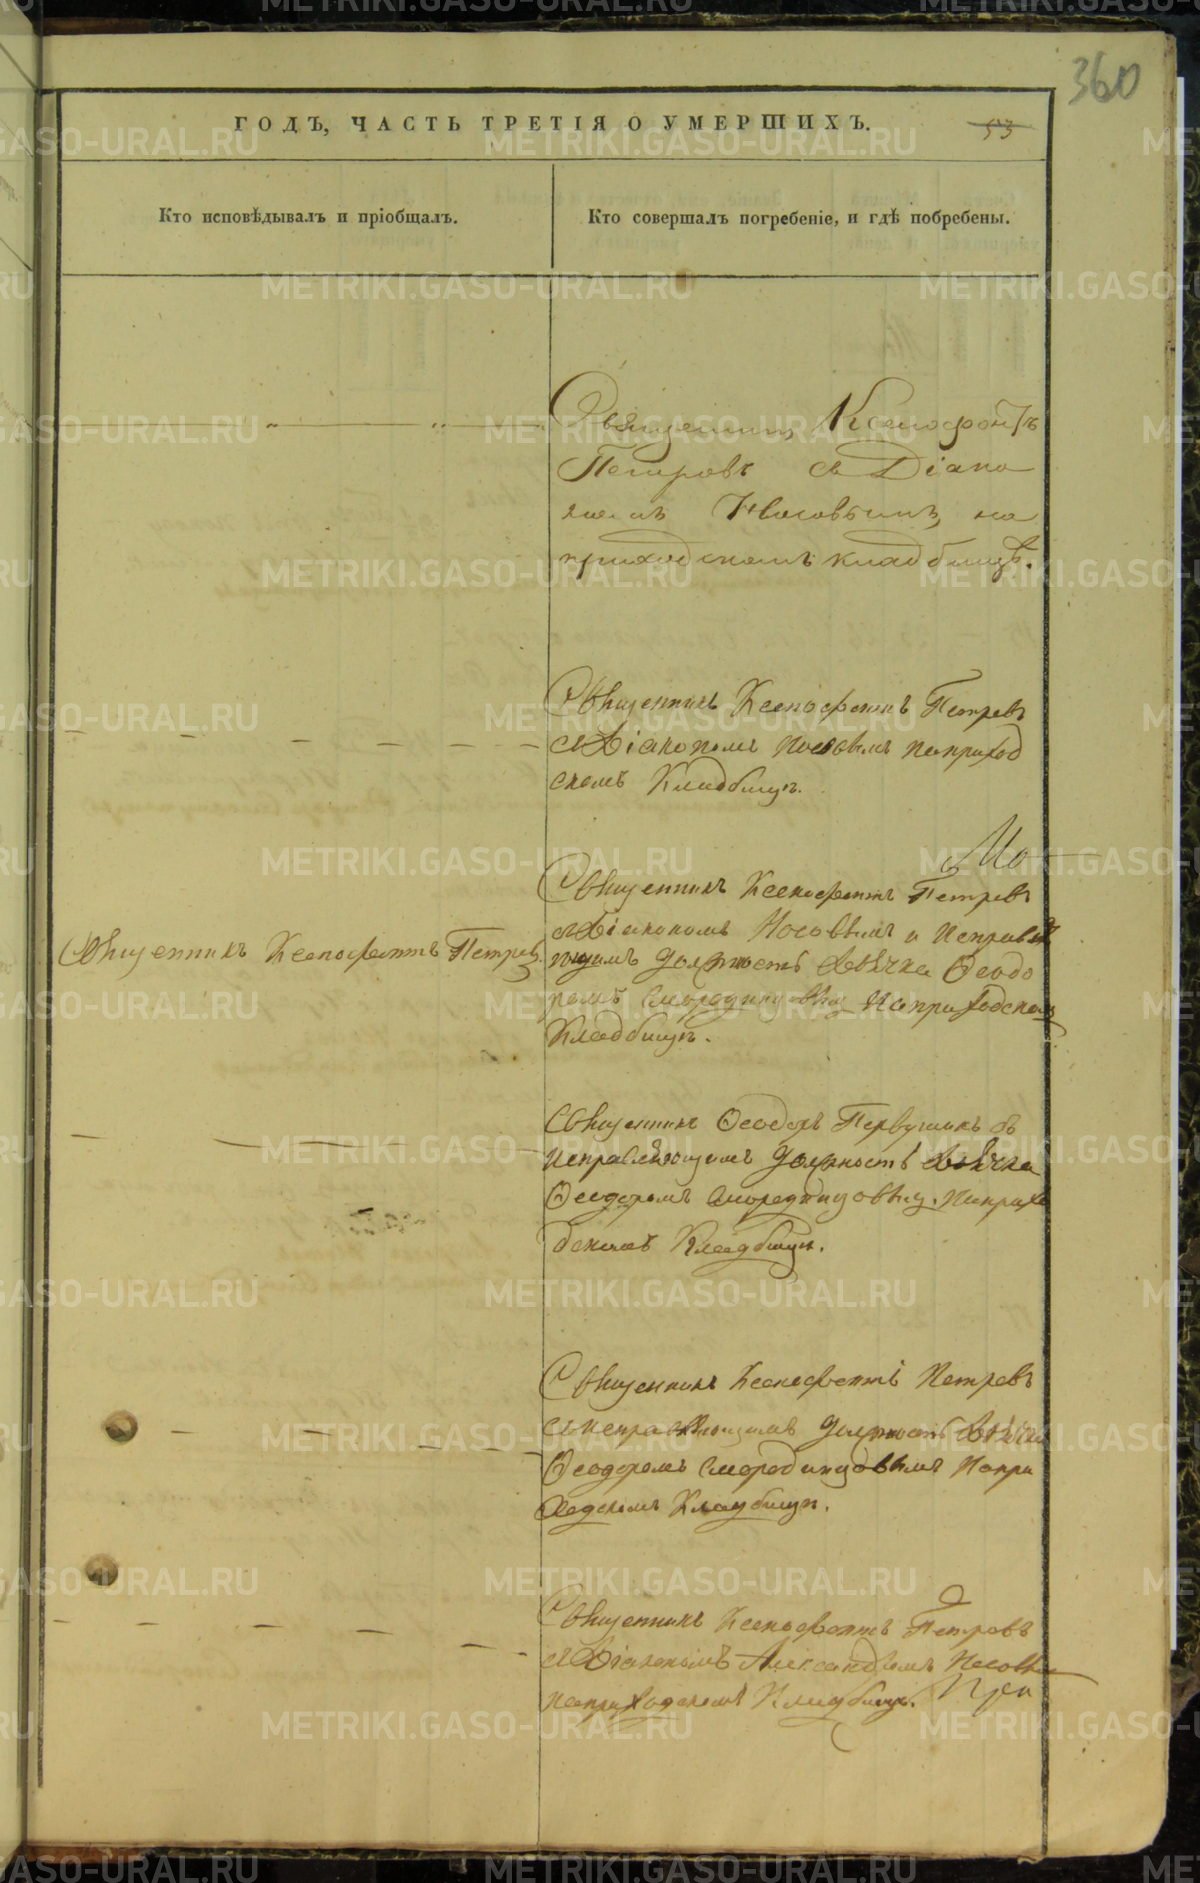 360
ГОДЪ, ЧАСТЬ ТРЕТІЯ О УМЕРШИХЪ.
53
Кто исповѣдывалъ и пріобщалъ.
Кто совершалъ погребеніе, и гдѣ побребены.
Священникъ Ксенофонтъ
Петровъ съ Діако
номъ Носовымъ, на
приходскомъ кладбищѣ.
Священникъ Ксенофонтъ Петровъ
съ Діакономъ Носовымъ наприход
скомъ Кладбищѣ.
Священникъ Ксенофонтъ Петровъ
Священникъ Ксенофонтъ Петровъ
съ Діакономъ Носовымъ и Исправля
ющимъ Должность Дьячка Ѳеодо
ромъ Смородинцовымъ наприходскомъ
Кладбищѣ.
Священникъ Ѳеодоръ Первушинъ съ
Исправляющимъ Должность Дьячка
Ѳеодоромъ Смородинцовымъ. Наприхо
дскомъ Кладбищѣ.
Священникъ Ксенофонтъ Петровъ
съ исправляющимъ Должность Дьячка
Ѳеодоромъ Смородинцовымъ Напри
ходскомъ Кладбищѣ.
Священникъ Ксенофонтъ Петровъ
съ Діакономъ Александромъ Носовымъ
наприходскомъ Кладбищѣ.
METRIKI.GASO-URAL.RU